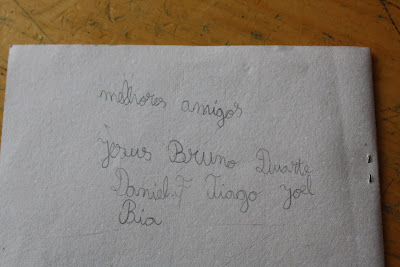 melhores amigos
Bruno Duarte
Daniel.F Tiago Joel
Bia